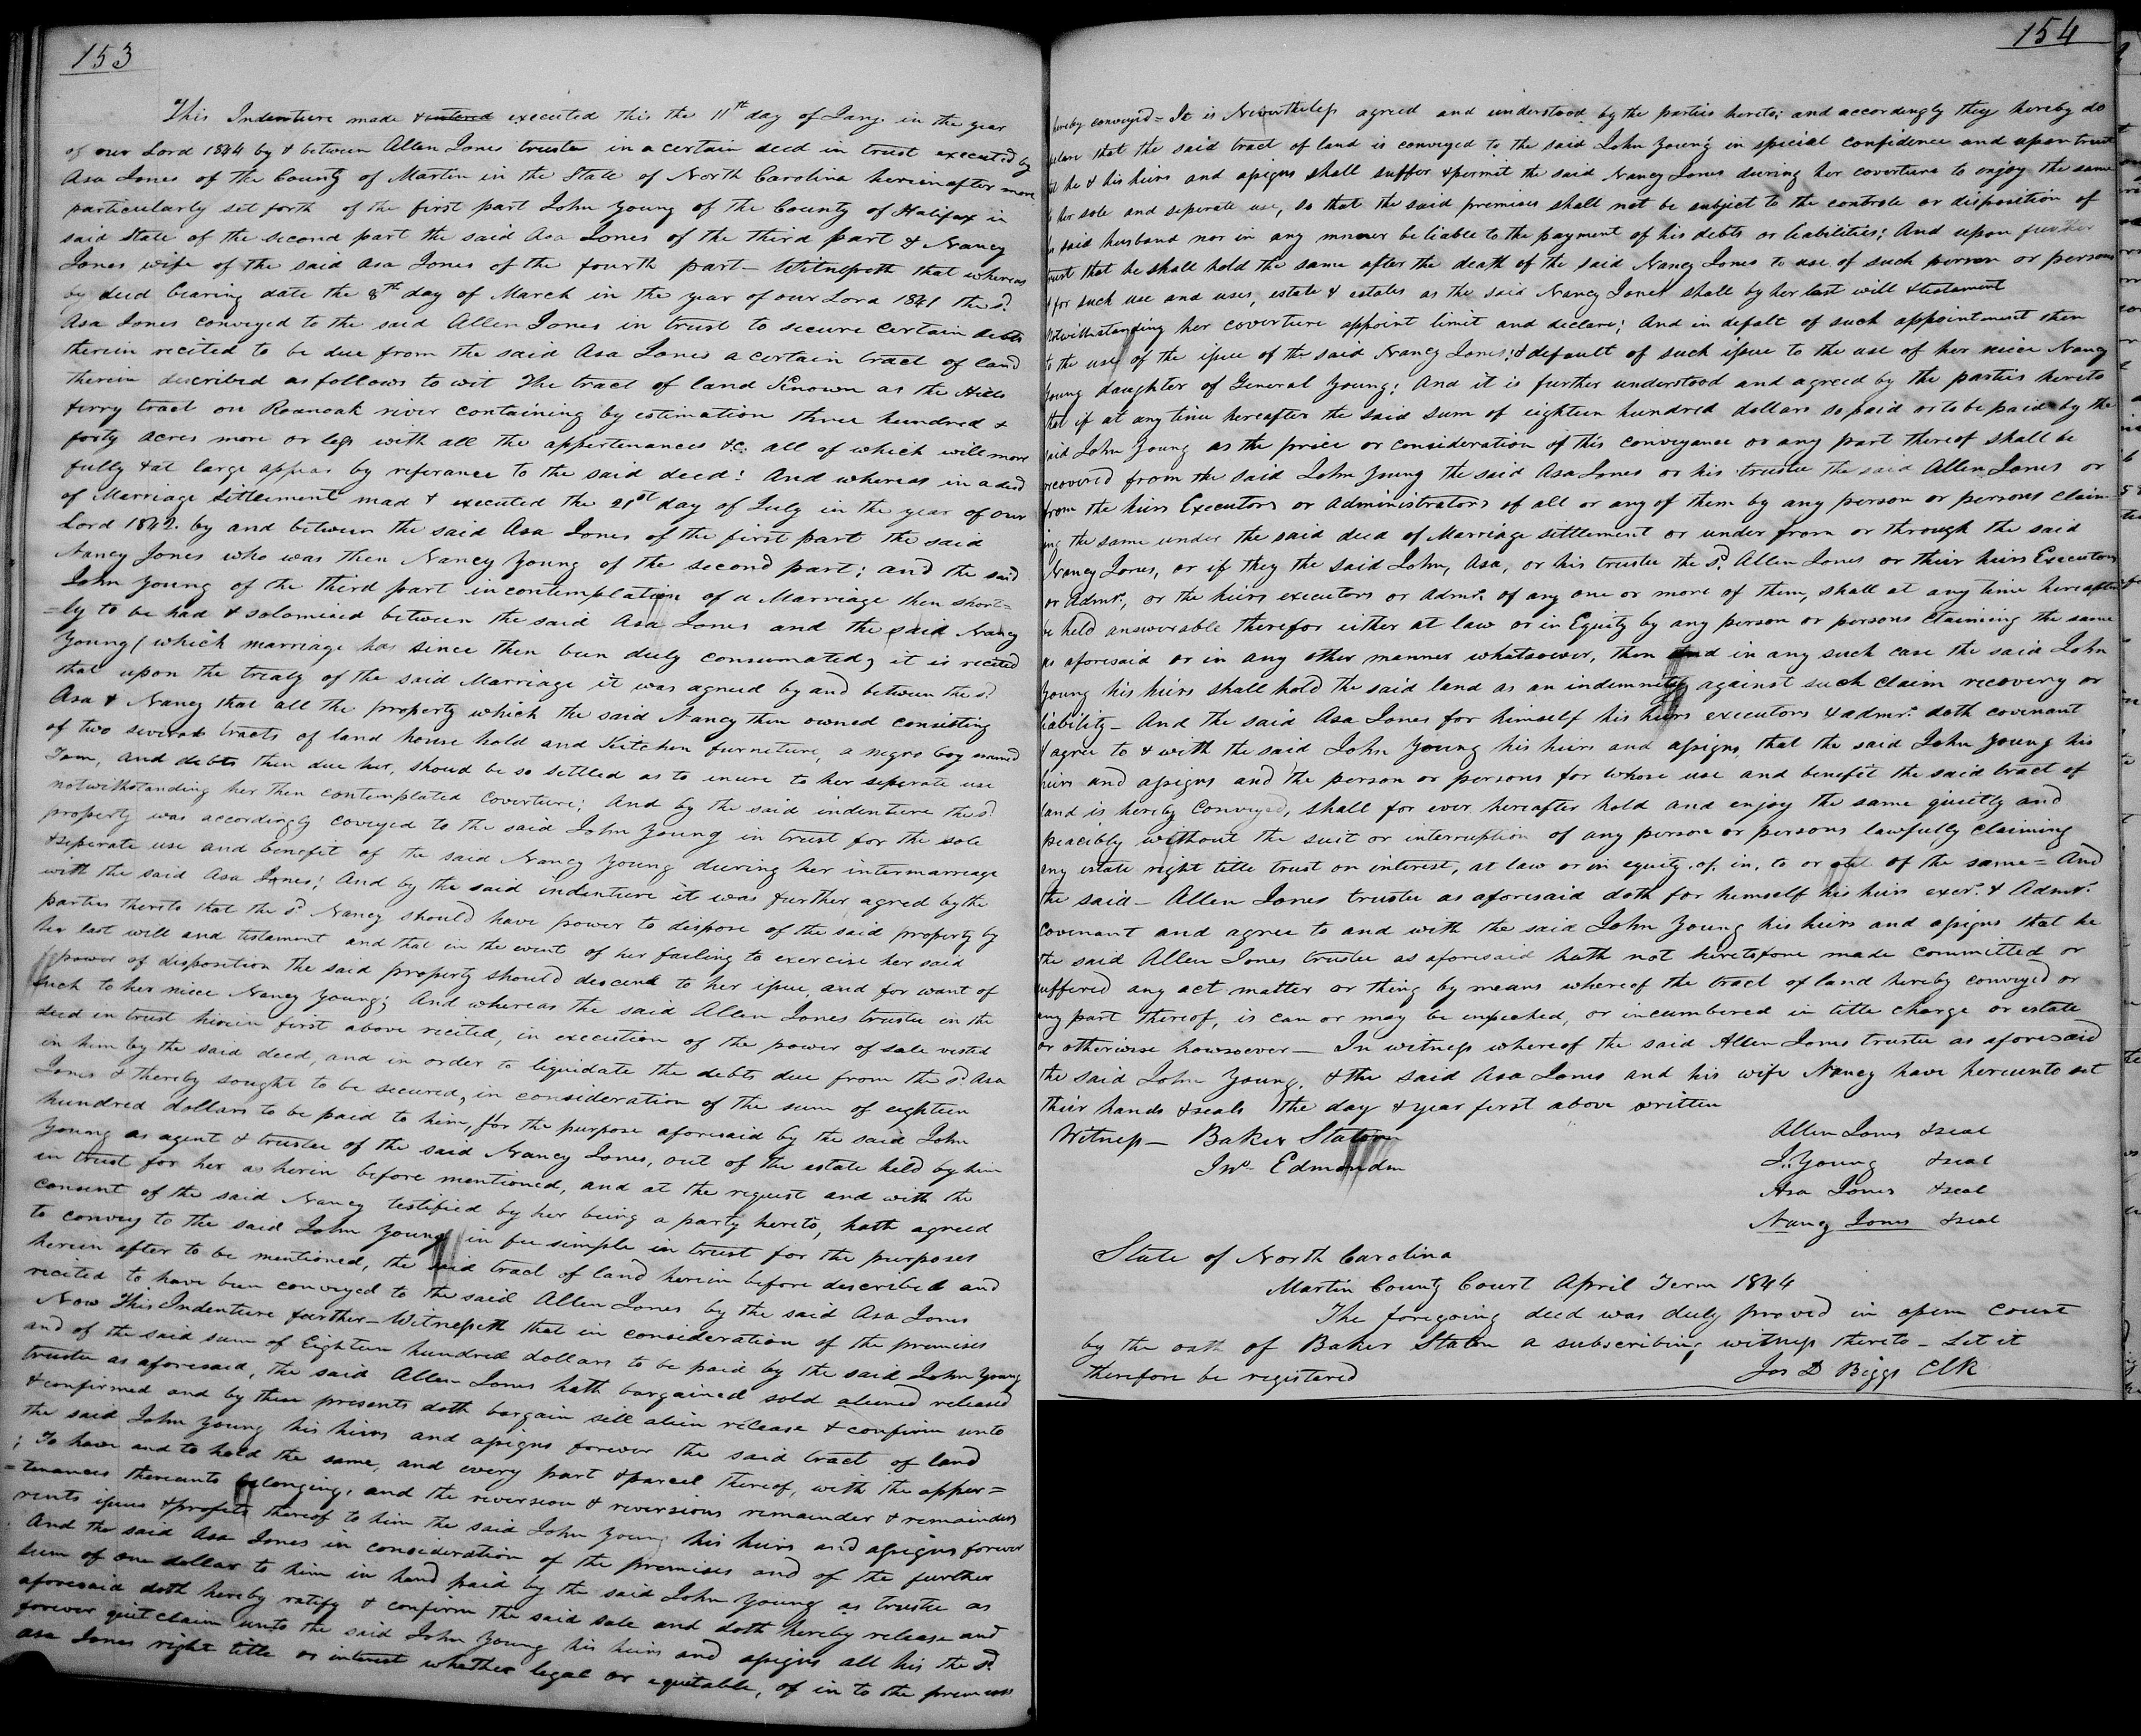 153
This Indenture made & entered executed this the 11th day of Jany. in the year
of our Lord 1844 by & between Allen Jones trustee in a certain deed in trust executed by
Asa Jones of the County of Martin in the State of North Carolina hereinafter more
particularly set forth of the first part John Young of the County of Halifax in
said State of the second part the said Asa Jones of the third part & Nancy
Jones wife of the said Asa Jones of the fourth part – Witnesseth that whereas
by deed bearing date the 8th day of March in the year of our Lord 1841 the sd.
Asa Jones conveyed to the said Allen Jones in trust to secure certain debts
therein recited to be due from the said Asa Jones a certain tract of land
therein described as follows to wit The tract of land Known as the Hills
ferry tract on Roanoak river containing by estimation three hundred &
forty acres more or less with all the appertenances &c. all of which will more
fully & at large appear by referance to the said deed: And whereas in a deed
of Marriage Settlement mad & executed the 21st day of July in the year of our
Lord 1842. by and between the said Asa Jones of the first part the said
Nancy Jones who was then Nancy Young of the second part; and the said
John Young of the third part in contemplation of a Marriage then short=
=ly to be had & solomised between the said Asa Jones and the said Nancy
Young ( which marriage has since then been duly consumated, it is recited
that upon the treaty of the said Marriage it was agreed by and between the sd.
Asa & Nancy that all the property which the said Nancy then owned consisting
of two several tracts of land house hold and Kitchen furneture, a negro boy named
Tom, and debts then due her, shoud be so settled as to enure to her seperate use
notwithstanding her then contemplated Coverture; And by the said indenture the sd.
property was accordingly coveyed to the said John Young in trust for the sole
& seperate use and benefit of the said Nancy Young during her intermarreage
with the said Asa Jones; And by the said indenture it was further agred by the
parties thereto that the sd. Nancy should have power to dispose of the said property by
her last will and testament and that in the event of her failing to exercise her said
power of disposition the said property should descend to her issue, and for want of
such to her niece Nancy Young; And whereas the said Allen Jones trustee in the
deed in trust herein first above recited, in execution of the power of sale vested
in him by the said deed, and in order to liquidate the debts due from the sd. Asa
Jones & thereby sought to be secured, in consideration of the sum of eighteen
hundred dollars to be paid to him, for the purpose aforesaid by the said John
Young as agent & trustee of the said Nancy Jones, out of the estate held by him
in trust for her as herein before mentioned, and at the request and with the
consent of the said Nancy testified by her being a party hereto, hath agreed
to convey to the said John Young in fee simple in trust for the purposes
herein after to be mentioned, the said tract of land herein before described and
recited to have been conveyed to the said Allen Jones by the said Asa Jones
Now This Indenture further – Witnesseth that in consideration of the premises
and of the said sum of Eighteen hundred dollars to be paid by the said John Young
trustee as aforesaid, the said Allen Jones hath bargained sold aliened released
& confirmed and by these presents doth bargain sell alien release & confirm unto
the said John Young his heirs and assigns forever the said tract of land
; To have and to hold the same, and every part & parcel thereof, with the apper=
=tenances thereunto belonging, and the reversion & reversions remainder & remainders
rents issues & profits thereof to him the said John Young his heirs and assigns forever
And the said Asa Jones in consideration of the premises and of the further
sum of one dollar to him in hand paid by the said John Young as trustee as
aforesaid doth hereby ratify & confirm the said sale and doth hereby release and
forever quit claim unto the said John Young his heirs and assigns all his the sd.
Asa Jones right title or interest whether legal or equitable, of in to the premises
154
hereby conveyed = It is Nevertheless agreed and understood by the parties hereto; and accordingly they hereby do
declare that the said tract of land is conveyed to the said John Young in special confidence and upon trust
that he & his heirs and assigns shall suffer & permit the said Nancy Jones during her coverture to enjoy the same
to her sole and seperate use, so that the said premises shall not be subject to the controle or disposition of
her said husband nor in any manner be liable to the payment of his debts or liabilities; And upon further
trust that he shall hold the same after the death of the said Nancy Jones to use of such person or persons
& for such use and uses, estate & estates as the said Nancy Jones shall by her last will & testament
notwithstanding her coverture appoint limit and declare; And in defalt of such appointment then
to the use of the issue of the said Nancy Jones; & default of such issue to the use of her niece Nancy
Young daughter of General Young; And it is further understood and agreed by the parties hereto
that if at any time hereafter the said sum of eighteen hundred dollars so paid or to be paid by the
said John Young as the price or consideration of this conveyance or any part thereof shall be
recovered from the said John Young the said Asa Jones or his trustee the said Allen Jones or
from the heirs Executors or administrators of all or any of them by any person or persons claim
ing the same under the said deed of Marriage settlement or under from or through the said
Nancy Jones, or if they the said John, Asa, or his trustee the sd. Allen Jones or their heirs Executors
or Admrs., or the heirs executors or Admrs. of any one or more of them, shall at any time hereafter
be held answerable therefor either at law or in Equity by any person or persons claiming the same
as aforesaid or in any other manner whatsoever, then and in any such case the said John
Young his heirs shall hold the said land as an indemnity against such claim recovery or
liability – And the said Asa Jones for himself his heirs executors & admrs. doth covenant
& agree to & with the said John Young his heirs and assigns, that the said John Young his
heirs and assigns and the person or persons for whose use and benefit the said tract of
land is hereby Conveyed, shall for ever hereafter hold and enjoy the same quietly and
peacibly without the suit or interruption of any person or persons lawfully claiming
any estate right title trust or interest, at law or in equity. of. in, to or out of the same = And
the said – Allen Jones trustee as aforesaid doth for himself his heirs exers. & Admrs.
covenant and agree to and with the said John Young his heirs and assigns that he
the said Allen Jones trustee as aforesaid hath not heretofore made committed or
suffered any act matter or thing by means whereof the tract of land hereby conveyed or
any part thereof, is can or may be impeached, or incumbered in title charge or estate
or otherwise howsoever – In witness whereof the said Allen Jones trustee as aforesaid
the said John Young, & the said Asa Jones and his wife Nancy have hereunto set
their hands & seals the day & year first above written
Witness – Baker Staton
Jno. Edmondson
Allen Jones & seal
J. Young & seal
Asa Jones & seal
Nancy Jones & seal
State of North Carolina
Martin County Court April Term 1844
The foregoing deed was duly proved in open court
by the oath of Baker Staton a subscribing witness thereto – Let it
therefore be registered
Jos D Biggs Clk